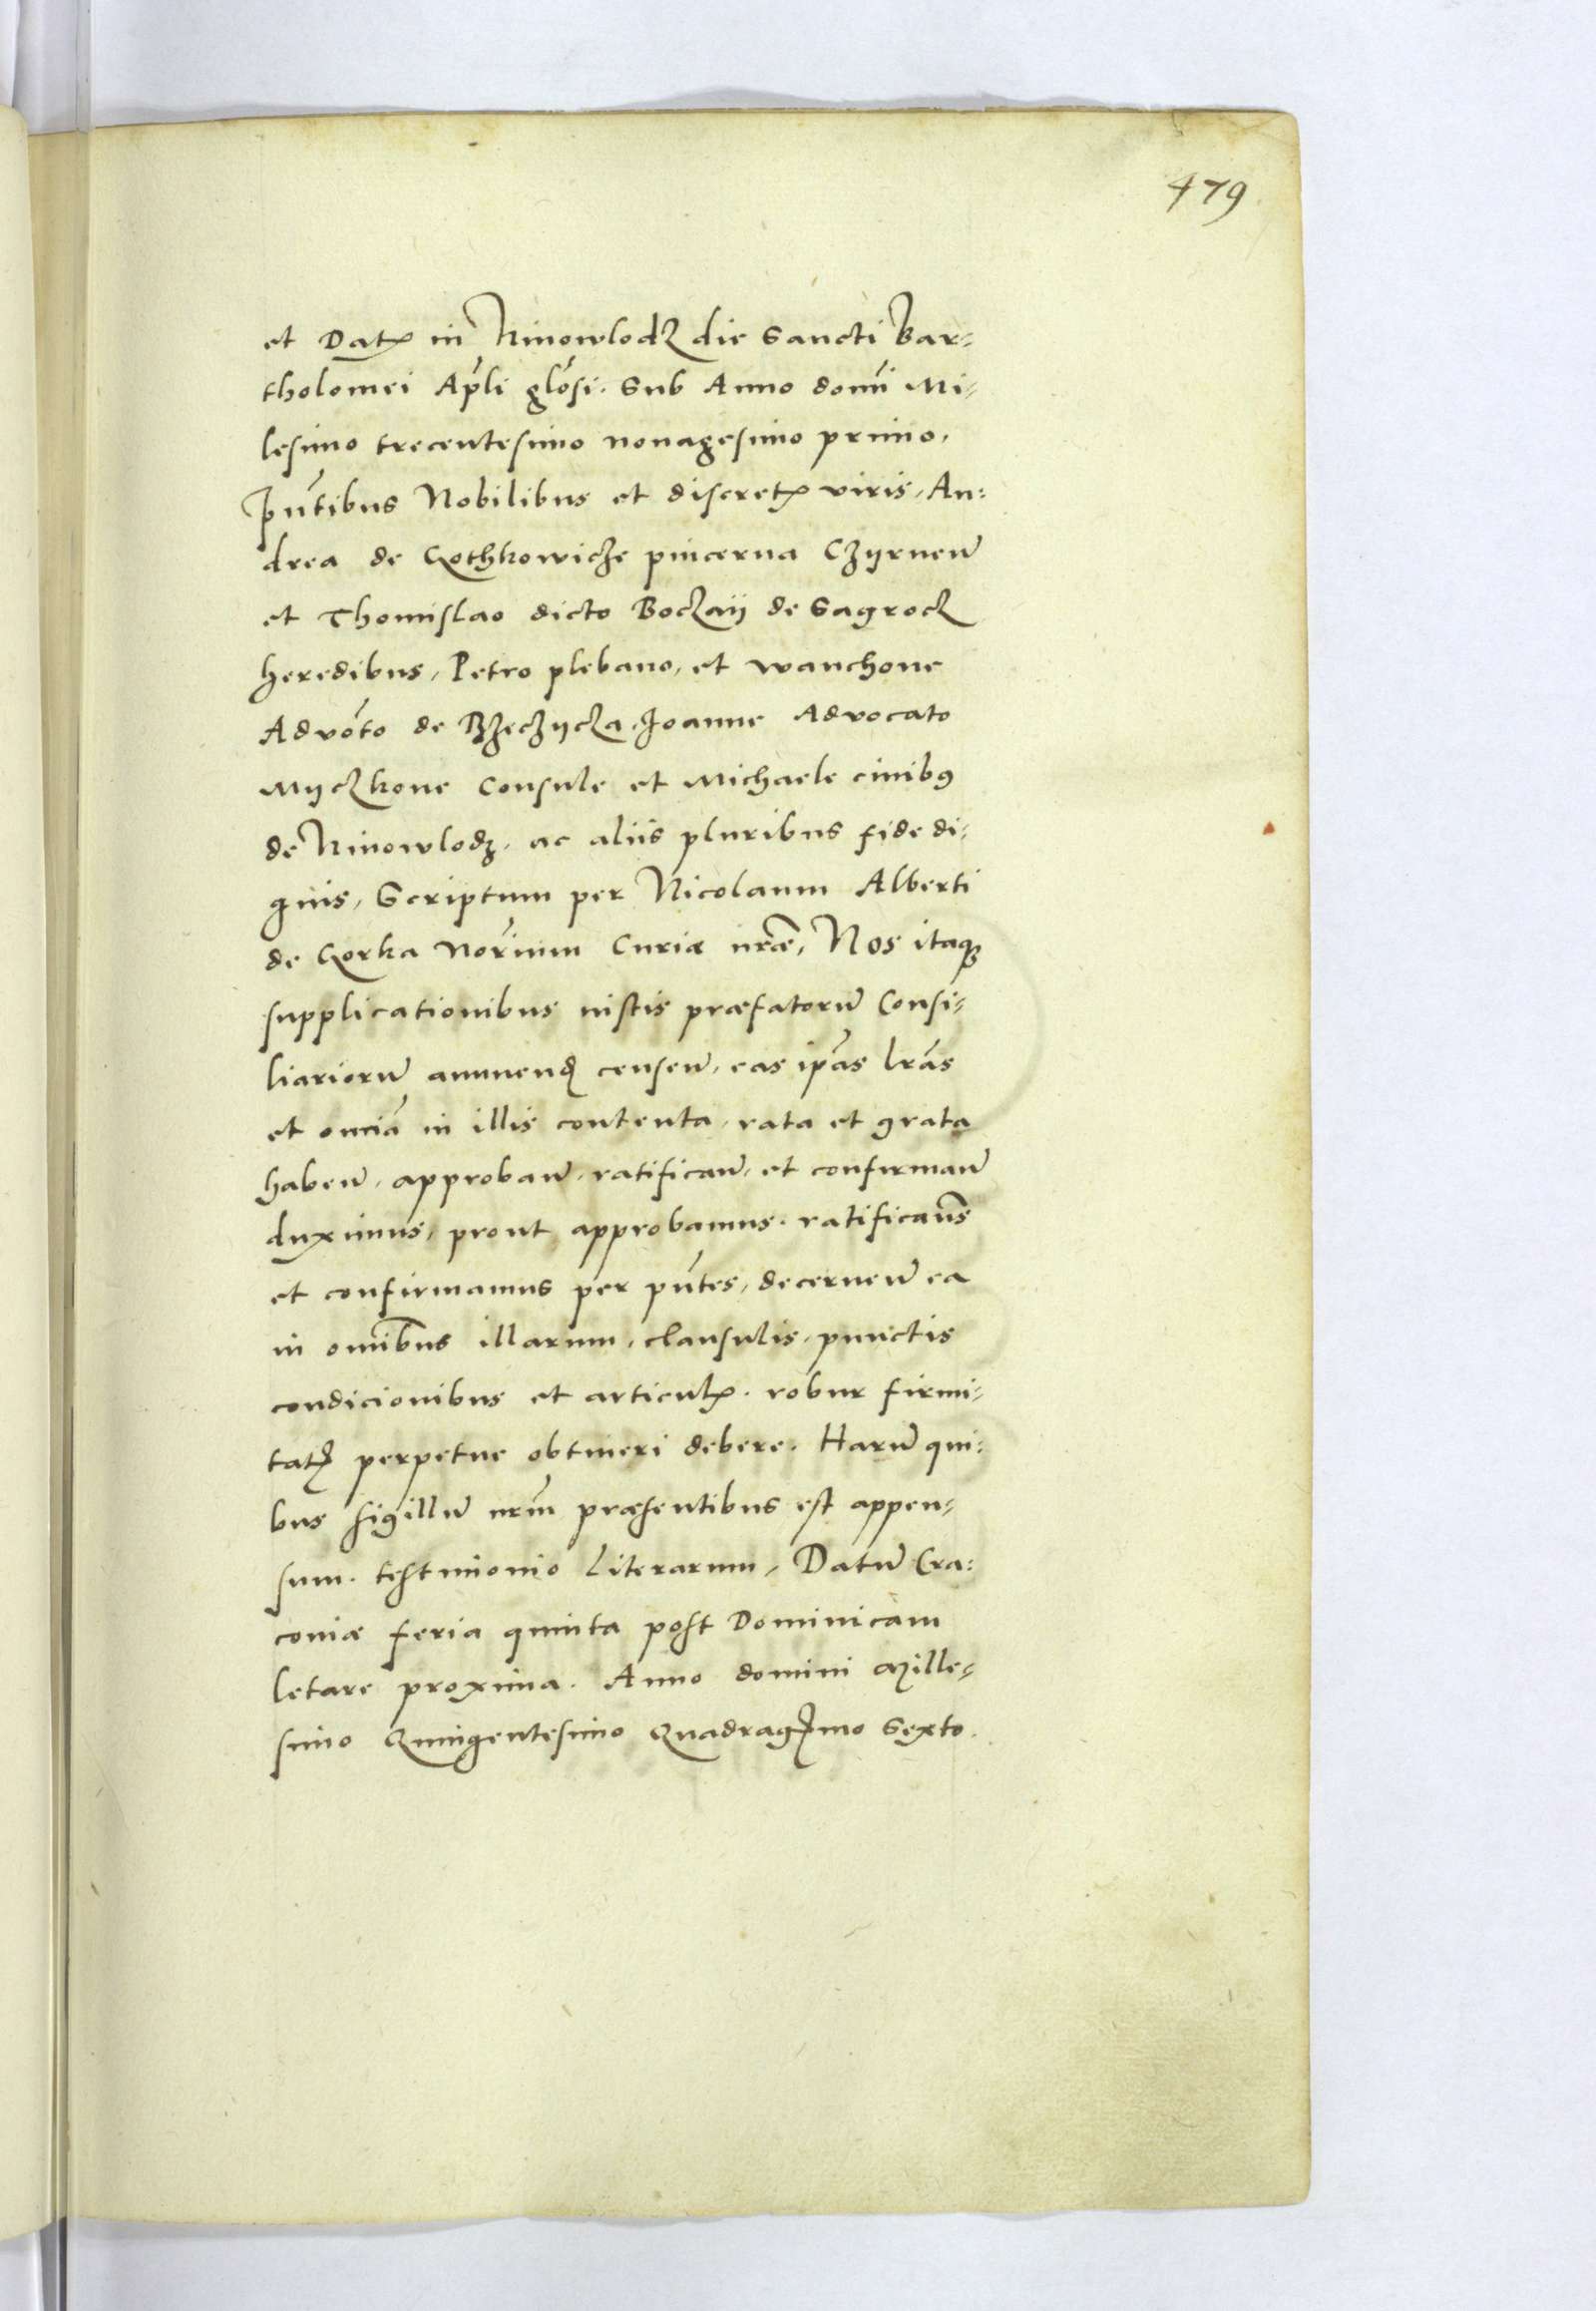 479
et Datꝭ in Ninowlodz die Sancti Bar-
tholomei Apl̃i glõsi. Sub Anno domĩ Mi-
lesimo trecentesimo nonagesimo primo,
p̃ñtibus Nobilibus et discretꝭ viris, An-
drea de Gothkowicze pincerna Czyrneñ
et Thomislao dicto Boczaÿ de Sagrocz
heredibus, Petro plebano, et wanchone
Advõto de Bzeczycza, Joanne Advocato
Myczkone Consule et Michaele civibꝯ
de Ninowlodz, ac aliis pluribus fide di-
gnis, Scriptum per Nicolaum Alberti
de Gorka Nor̃ium Curiæ nr̃æ, Nos itaqꝫ
supplicationibus iustis præfatorũ Consi-
liariorũ annuendꝭ censeñ, eas ip̃as lr̃as
et om̃ia in illis contenta, rata et grata
habeñ, approbañ, ratificañ, et confirmañ
duximus, prout approbamus, ratificam̃s
et confirmamus per pñtes, decerneñ ea
in om̃ibus illarum, clausulis, punctis
condicionibus et articulꝭ, robur firmi-
tatꝭ perpetue obtineri debere. Harũ qui-
bus sigillũ nr̃m præsentibus est appen-
sum, testimonio Literarum, Datũ Cra-
coviæ feria quinta post Dominicam
letare proxima. Anno domini Mille-
simo Quingentesimo Quadragꝭimo Sexto.